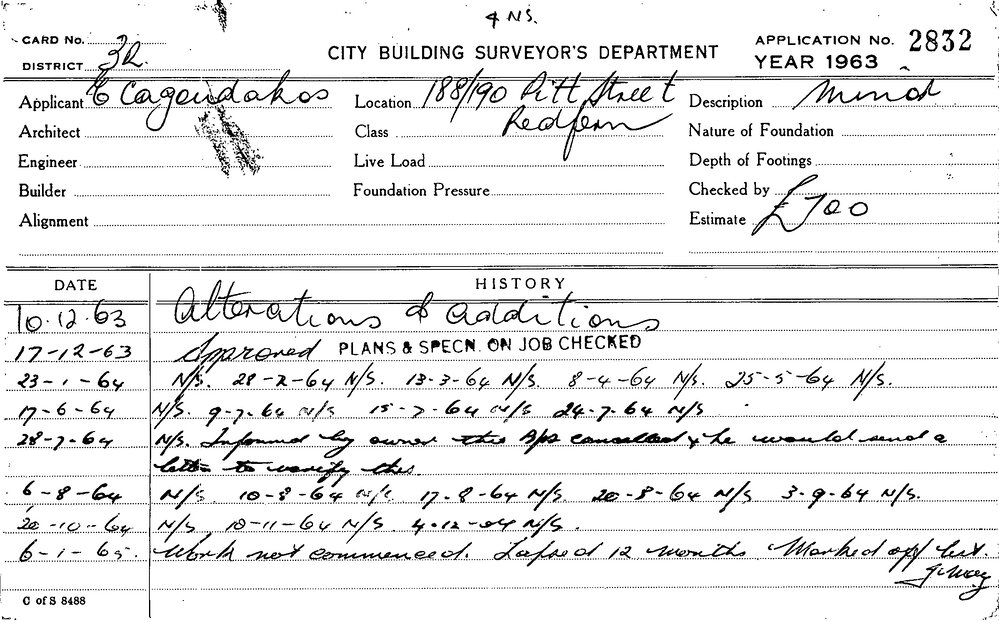 4 NS.
CARD No. 32
DISTRICT
CITY BUILDING SURVEYOR'S DEPARTMENT
APPLICATION No. 2832
YEAR 1963
Applicant E Cagoudakos
Location 188/190 Pitt Street
Redfern
Description Minor
Architect
Class
Nature of Foundation
Engineer
Live Load
Depth of Footings
Builder
Foundation Pressure
Checked by
Alignment
Estimate £700
DATE HISTORY
10.12.63 Alterations & additions
17-12-63 Approved PLANS & SPECN. ON JOB CHECKED
23-1-64 N/S. 28-2-64 N/S. 13-3-64 N/S. 8-4-64 N/S. 25-5-64 N/S.
17-6-64 N/S. 9-7-64 N/S 15-7-64 N/S 24-7-64 N/S
28-7-64 N/S. Informed by owner this App cancelled & he would send a
letter to verify this.
6-8-64 N/S 10-8-64 N/S 17-8-64 N/S. 20-8-64 N/S 3-9-64 N/S.
20-10-64 N/S 10-11-64 N/S. 4-12-64 N/S.
6-1-65. Work not commenced. Lapsed 12 months Marked off list.
C of S 8488